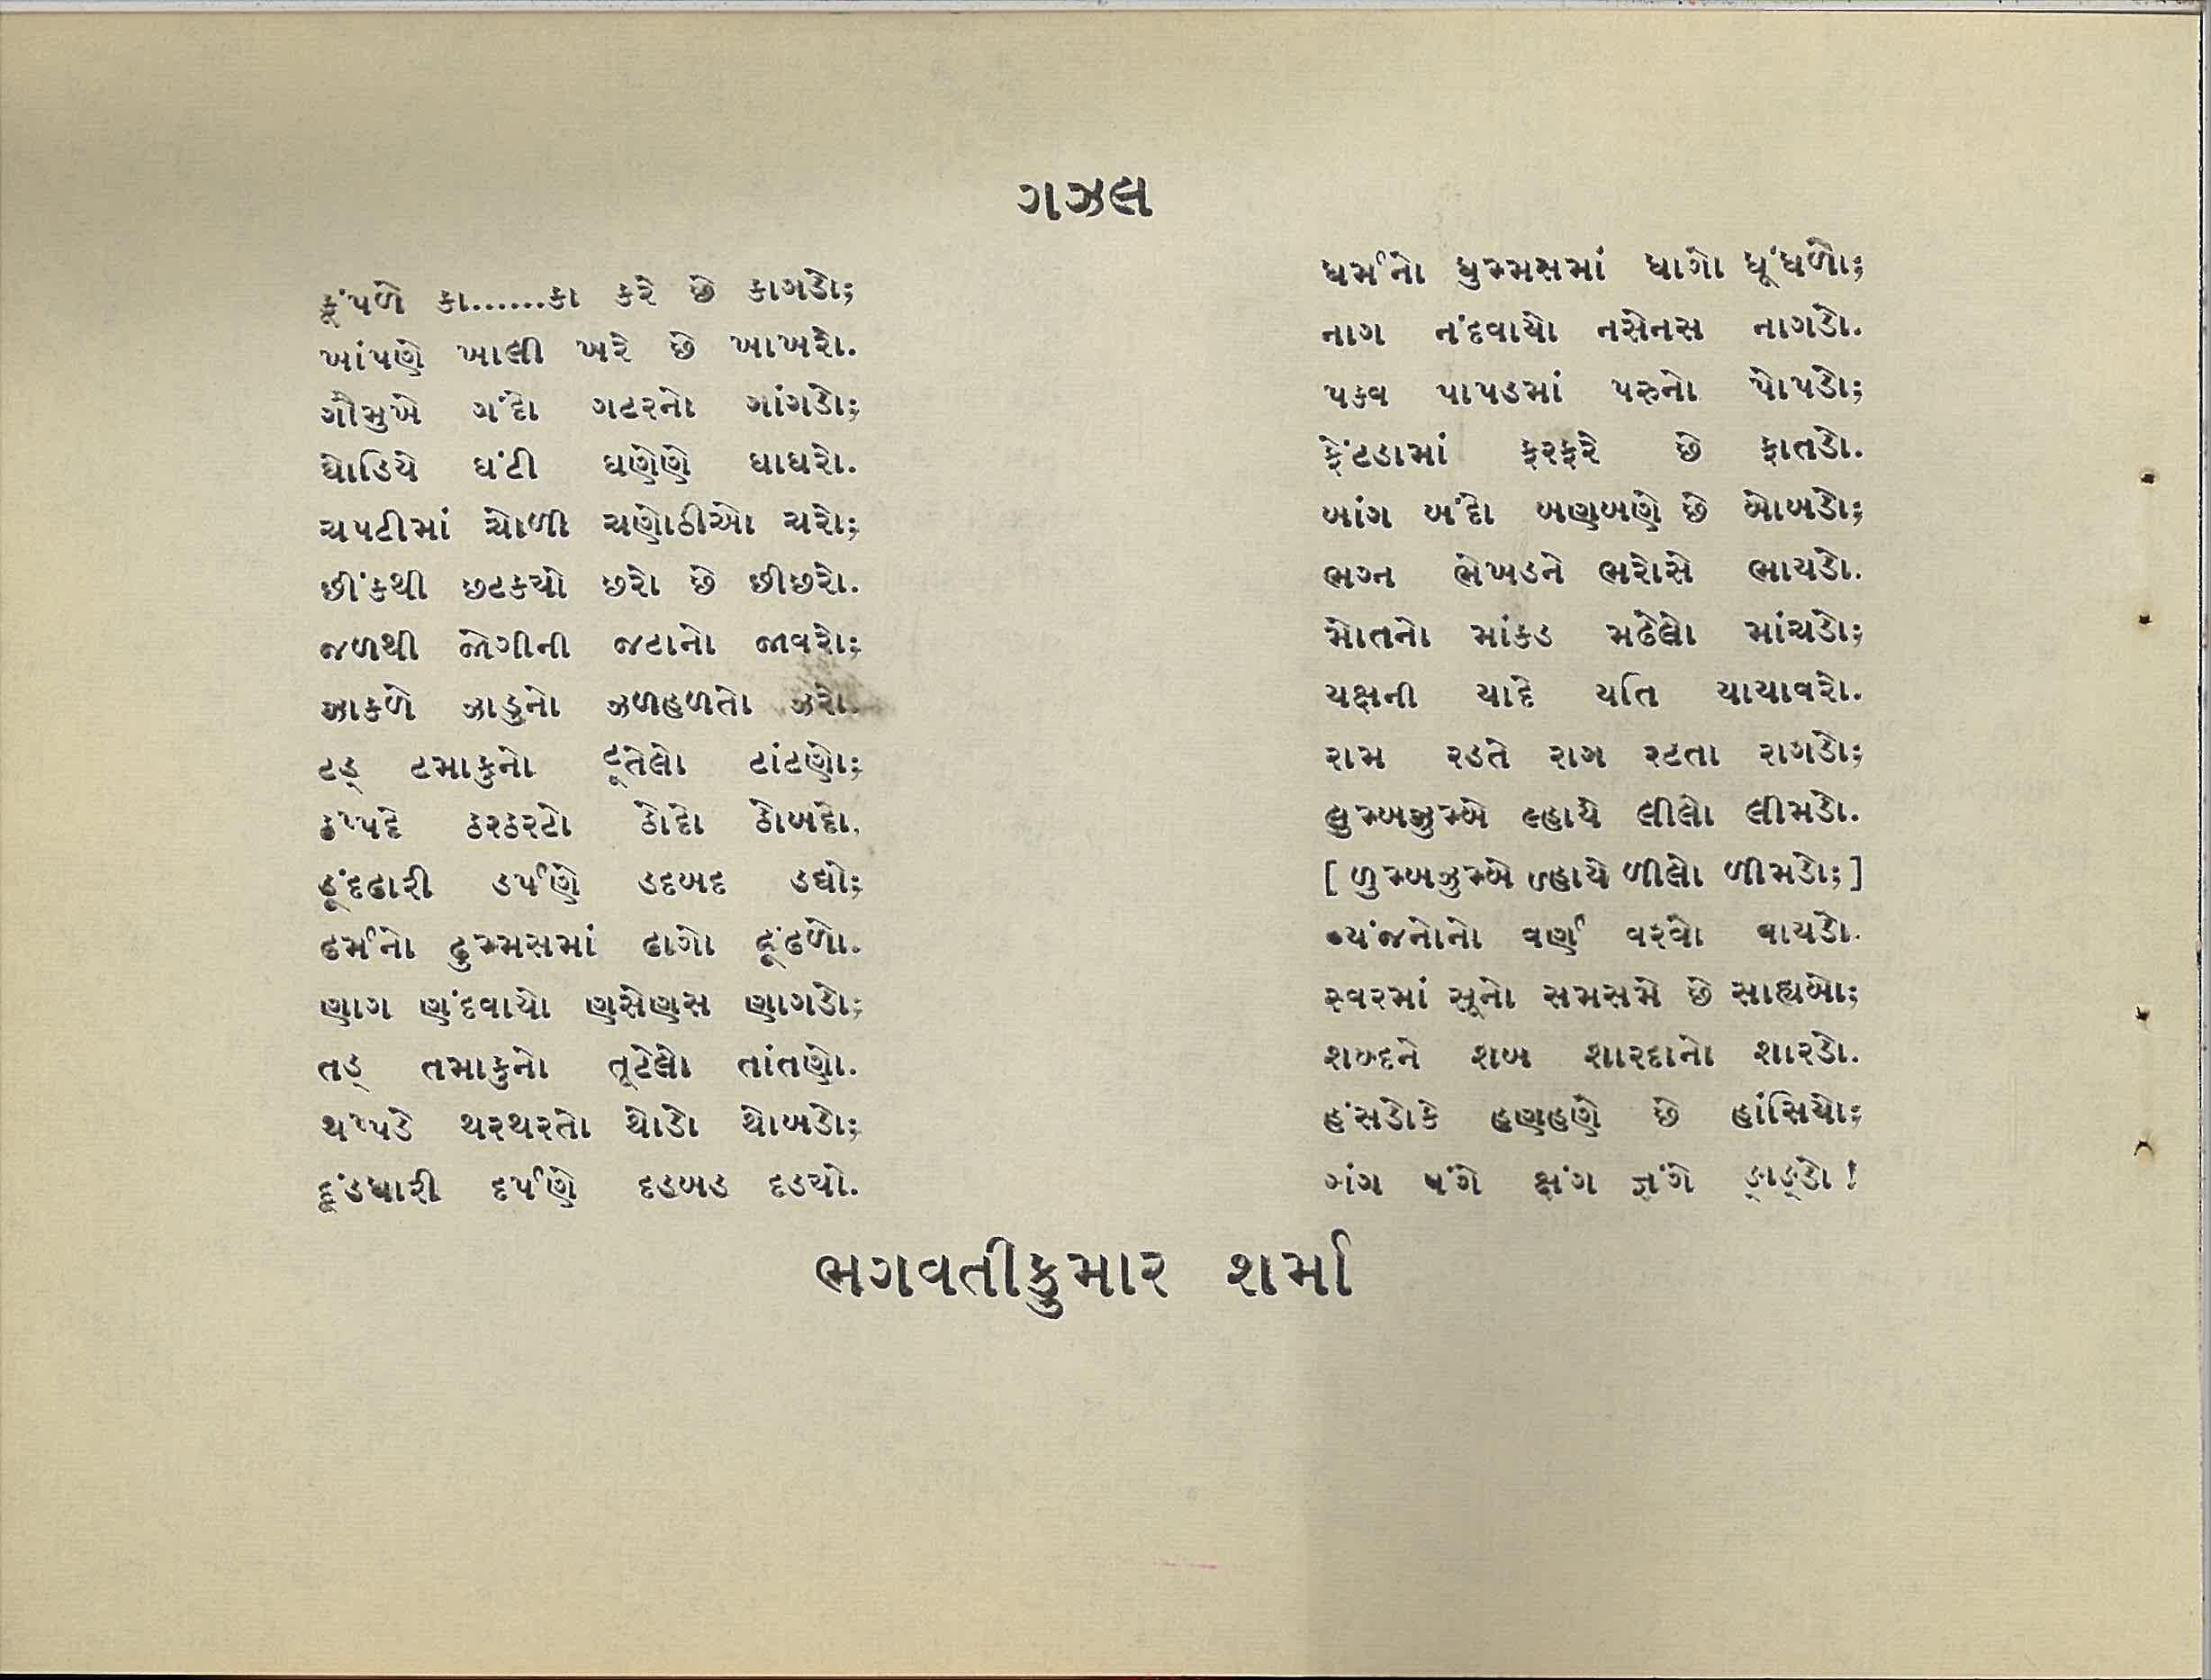 ગઝલ
કૂંપળે કા......કા કરે છે કાગડો;
ખાંપણે ખાલી ખરે છે ખાખરો.
ગૌમુખે ગંદો ગટરનો ગાંગડો;
ઘોડિયે ઘંટી ઘણેણે ઘાઘરો.
ચપટીમાં ચોળી ચણોઠીઓ ચરો;
છીંકથી છટકયો છરો છે છીછરો.
જળથી જોગીની જટાનો જાવરો;
ઝાકળે ઝાડુનો ઝળહળતો ઝરો.
ટડ્ ટમાકુનો ટૂતેલો ટાંટણો;
ઠપ્પદે ઠરઠરટો ઠોદો ઠોબદો.
ડૂંદઢારી ડર્પણે ડદબદ ડઘો;
ઢર્મનો ઢુમ્મસમાં ઢાગો ઢૂંઢળો.
ણાગ ણંદવાયો ણસેણસ ણાગડો;
તડ્ તમાકુનો તૂટેલો તાંતણો.
થપ્પડે થરથરતો થોડો થોબડો;
દૂંડધારી દર્પણે દડબડ દડયો.
ધર્મનો ધુમ્મસમાં ધાગો ધૂંધળો;
નાગ નંદવાયો નસેનસ નાગડો.
પક્વ પાપડમાં પરુનો પોપડો;
ફેંટડામાં ફરફરે છે ફાતડો.
બાંગ બંદો બણબણે છે બોબડો;
ભગ્ન ભેખડને ભરોસે ભાયડો.
મોતનો માંકડ મઢેલો માંચડો;
યક્ષની યાદે યતિ યાયાવરો.
રામ રડતે રાગ રટતા રાગડો;
લુમ્બઝુમ્બે લ્હાયે લીલો લીમડો.
[ ળુમ્બઝુમ્બે ળ્હાયે ળીલો ળીમડો; ]
વ્યંજનોનો વર્ણ વરવો વાયડો.
સ્વરમાં સૂનો સમસમે છે સાહ્યબો;
શબ્દને શબ શારદાનો શારડો.
હંસડોકે હણહણે છે હાંસિયો;
ક્ષંગ જ્ઞંગે ઙાઙ્ડો !
ભગવતીકુમાર શર્મા